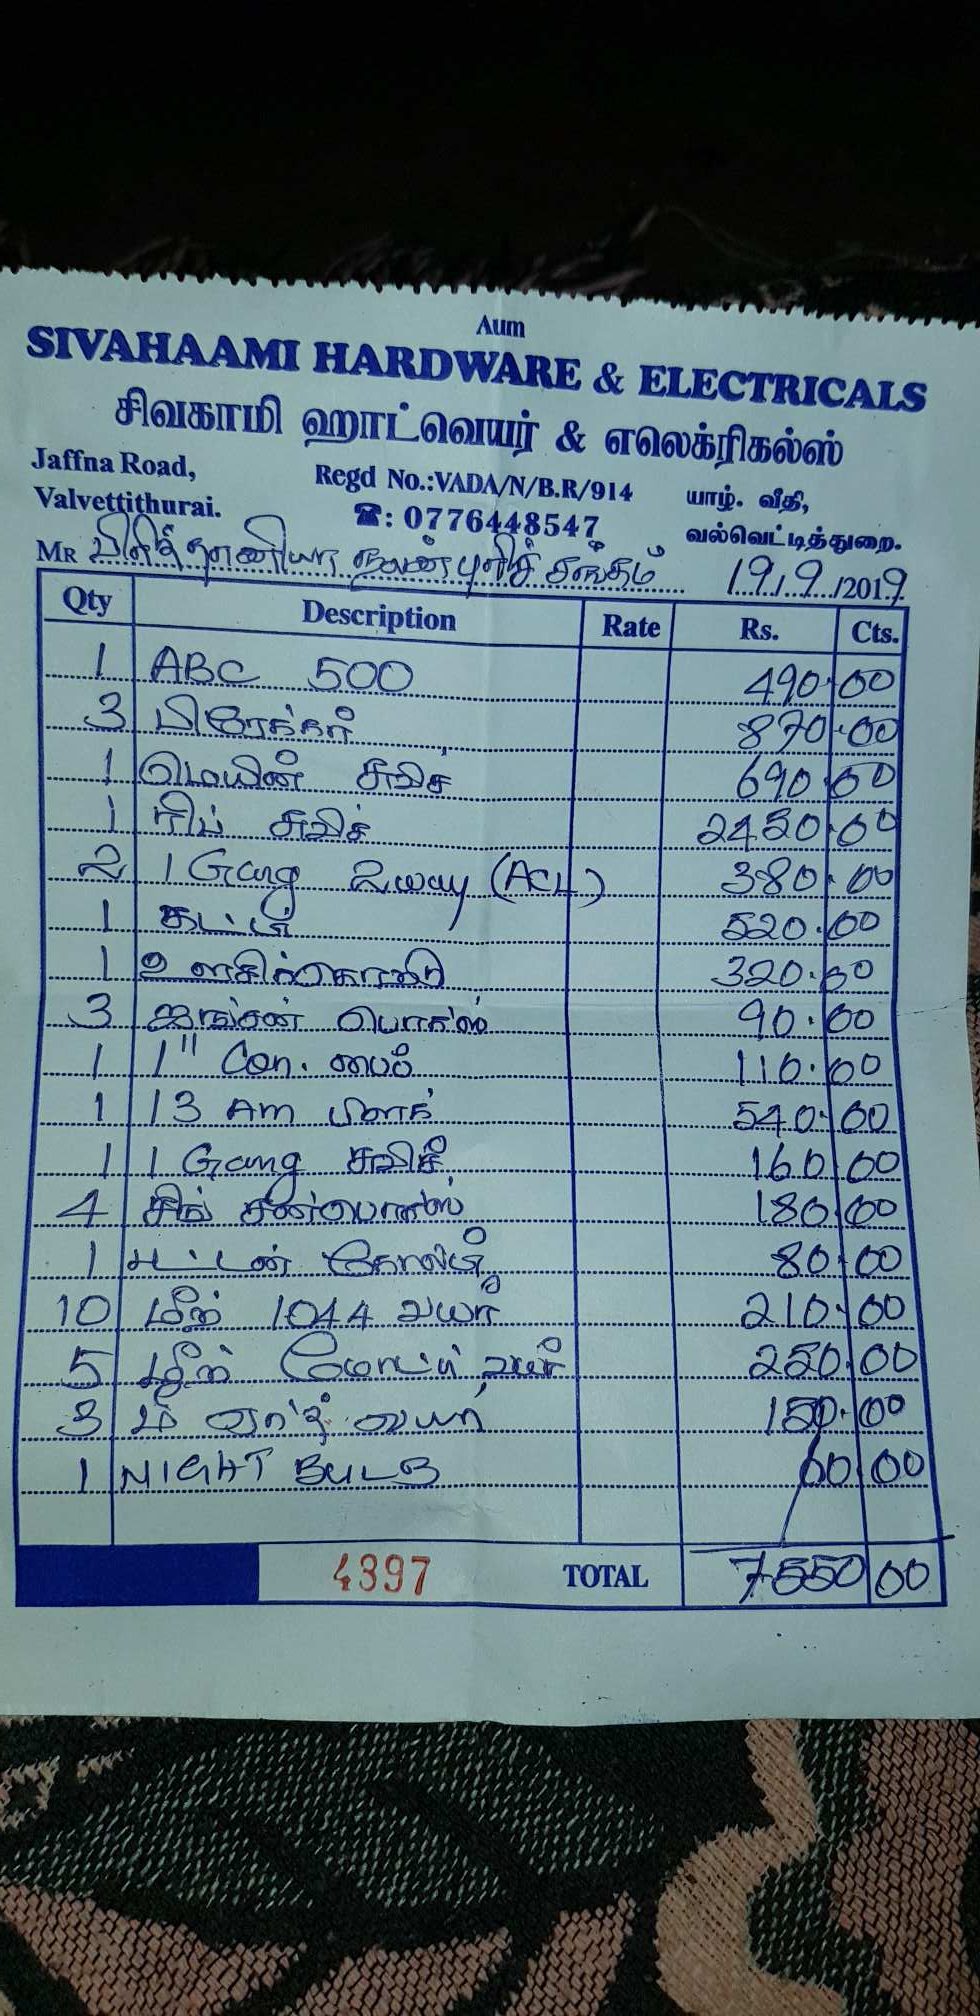 Aum
SIVAHAAMI HARDWARE & ELECTRICALS
சிவகாமி ஹாட்வெயர் & எலெக்ரிகல்ஸ்
Jaffna Road, Regd No.:VADA/N/B.R/914 யாழ். வீதி,
Valvettithurai. ☎: 0776448547 வல்வெட்டித்துறை.
MR 19/9/2019
Qty Description Rate Rs. Cts.
1 ABC 500 490.00
3 870.00
1 மெயின் சுவிச் 690.00
1 றிப் சுவிச் 2450.00
2 1 Gang 2way (ACL) 380.00
1 520.00
1 320.00
3 ஜங்சன் பொக்ஸ் 90.00
1 1" Con. பைப் 110.00
1 13 Am பிளக் 540.00
1 1 Gang சுவிச் 160.00
4 180.00
1 பட்டன் கோல்டர் 80.00
10 மீற் 1044 வயர் 210.00
5 மீற் வயர் 250.00
3 மீ ஏர்த் வயர் 150.00
1 NIGHT BULB 60.00
4397 TOTAL 7550 00